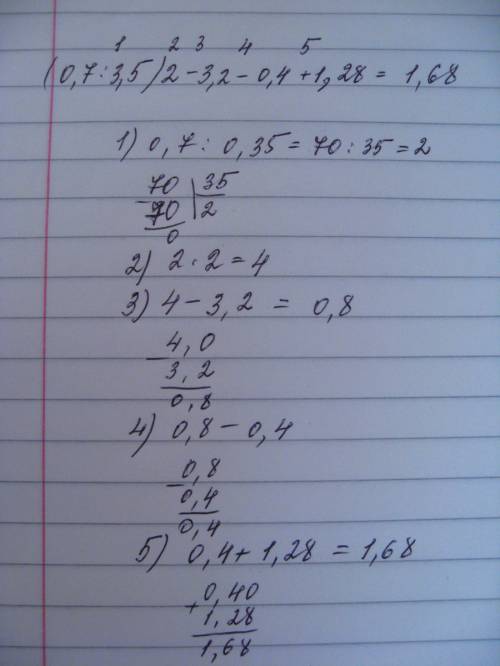 1 2 3 4 5
(0,7:3,5)2-3,2-0,4+1,28= 1,68
1) 0,7: 0,35=70:35=2
-70 | 35
70 | 2
0
2) 2·2=4
3) 4-3,2 = 0,8
- 4,0
3,2
0,8
4) 0,8-0,4
- 0,8
0,4
0,4
5) 0,4+1,28 =1,68
+ 0,40
1,28
1,68